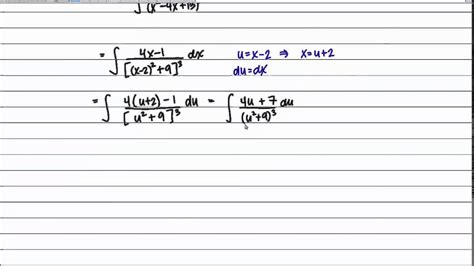 ∫(x²-4x+13)
= ∫ 4x-1 / [(x-2)²+9]³ dx   u=x-2 ⇒ x=u+2
du=dx
= ∫ 4(u+2)-1 / [u²+9]³ du = ∫ 4u+7 / (u²+9)³ du